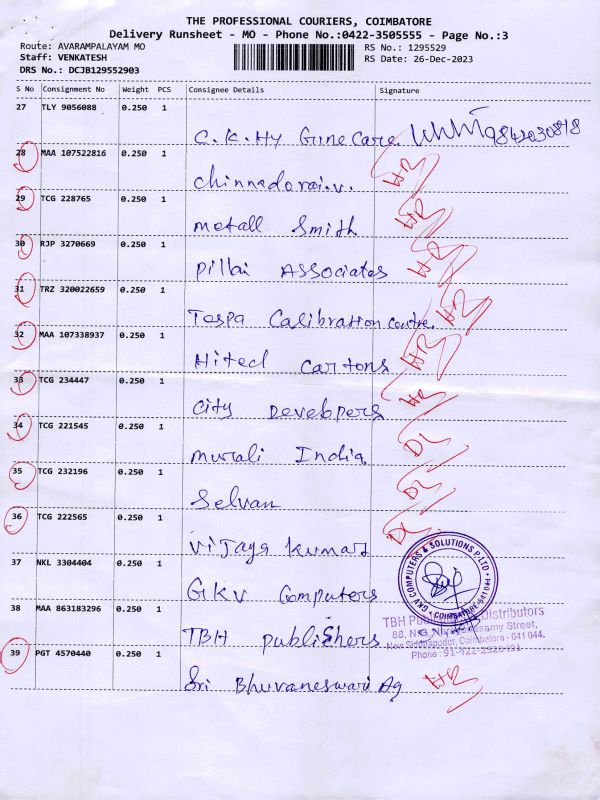 THE PROFESSIONAL COURIERS, COIMBATORE
Delivery Runsheet - MO - Phone No.:0422-3505555 - Page No.:3
Route: AVARAMPALAYAM MO
RS No.: 1295529
Staff: VENKATESH
RS Date: 26-Dec-2023
DRS No.: DCJB129552903
S No Consignment No Weight PCS Consignee Details Signature
27 TLY 9056088 0.250 1
C.K.Hy Gune Care
28 MAA 107522816 0.250 1
Chinnadorai.v. HR
29 TCG 228765 0.250 1
metall Smith HR
30 RJP 3270669 0.250 1
pillai Associates HR
31 TRZ 320022659 0.250 1
Taspa Calibration Centre. HR
32 MAA 107338937 0.250 1
Hitech Cartons HR
33 TCG 234447 0.250 1
City Develpers HR
34 TCG 221545 0.250 1
murali India DL
35 TCG 232196 0.250 1
Selvan DL
36 TCG 222565 0.250 1
Vijaya kumar DL
37 NKL 3304404 0.250 1
GKV Computers
GKV COMPUTERS & SOLUTIONS P LTD
COIMBATORE-641044
38 MAA 863183296 0.250 1
TBH publishers
TBH Distributors
Street,
New Siddhapudur, Coimbatore - 641 044.
39 PGT 4570440 0.250 1
Sri Bhuvaneswari Ag HR